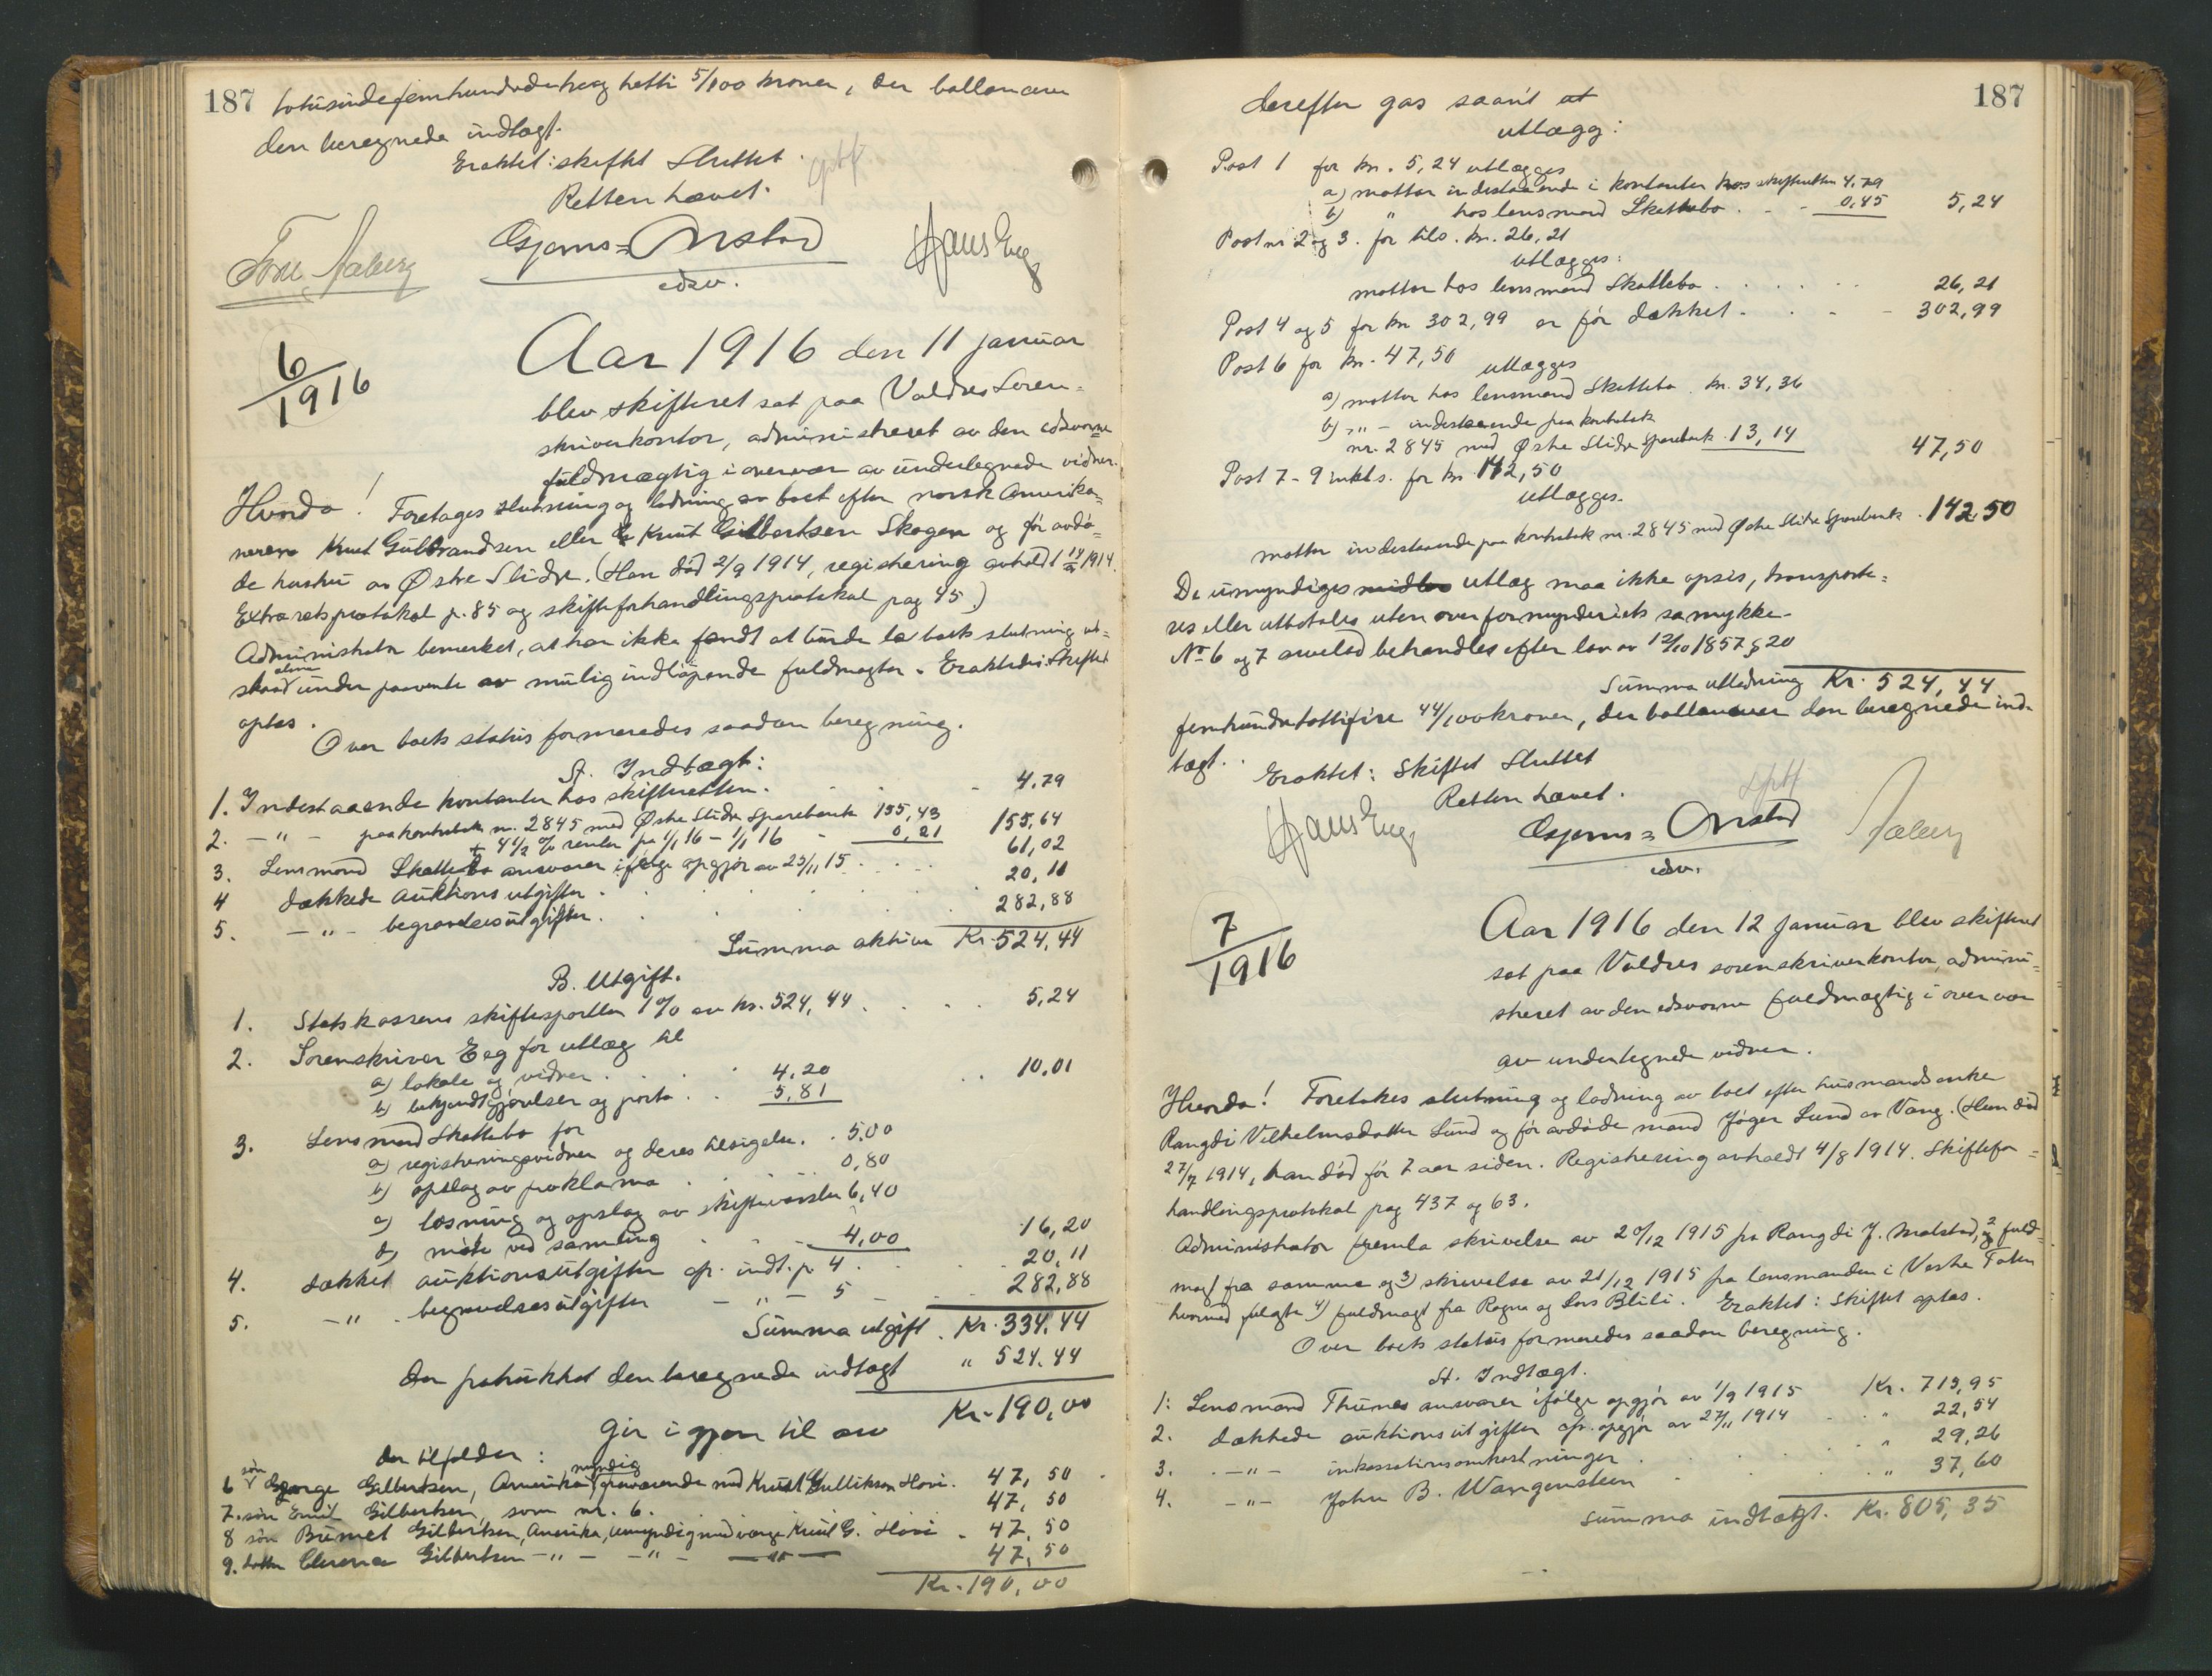 187 totusindefemhundrede 5/100 kroner, der ballancerer
den beregnede indtægt.
Eraktet: skiftet sluttet.
Retten hævet.
Aaberg
Onstad
edsv.
Hans Eeg
6/1916
Aar 1916 den 11 januar
blev skifteret sat paa Valdres soren=
skriverkontor, administreret av den edsvorne
fuldmægtig i overvær av undertegnede vidner.
Hvorda! Foretages slutning og lodning av boet efter norsk Amerika=
neren Knut Gulbrandsen eller Knut Gilbertsen Skogen og før avdø=
de hustru av Østre Slidre. (Han død 2/9 1914, registrering avholdt 14/9 1914.
Extraretsprotokol p. 85 og skifteforhandlingsprotokol pag 45.)
Administrator bemerket, at har ikke fundt at burde la boets slutning ut=
staa alene under paavente av mulig indløpende fuldmagter. Eraktedes: Skiftet
optas.
Over boets status formeredes saadan beregning.
A. Indtægt:
1. Indestaaende kontanter hos skifteretten. 4,79
2. -"- paa kontrabok nr. 2845 med Østre Slidre Sparebank 155,43
+ 4 1/2 % renter fra 1/1 16 - 1/1 16 0,21 155,64
3. Lensmand Skattebo ansvarer ifølge opgjør av 23/11 15. 61,02
4 dækkede auktionsutgifter 20,11
5. -"- begravelsesutgifter. 282,88
Summa aktiva Kr. 524,44
B. Utgift.
1. Statskassens skiftesportler 1% av kr. 524,44 5,24
2. Sorenskriver Eeg for utlæg til
a) lokale og vidner 4,20
b) bekjendtgjørelser og porto 5,81 10,01
3. Lensmand Skattebo for
a) registreringsvidner og deres tilsigelse. 5,00
b) opslag av proklama 0,80
c) læsning og opslag av skiftevarsler 6,40
d) møte ved samling 4,00 16,20
4. dækket auktionsutgifter cfr. indt. p 4 20,11
5. -"- begravelsesutgifter -"- 5 282,88
Summa utgift Kr. 334,44
der fratrukket den beregnede indtægt " 524,44
gir igjen til arv Kr. 190,00
der tilfalder:
6 søn George Gilbertsen, Amerika, myndig, fraværende med Knut Gulliksen Hovi. 47,50
7. søn Emil Gilbertsen, som nr. 6. 47,50
8 søn Gilbertsen, Amerika, umyndig med værge Knut G. Hovi 47,50
9. datter Gilbertsen -"- -"- -"- 47,50
Kr. 190,00
187
derefter gas saant at
utlægg:
Post 1 for kr. 5,24 utlægges
a) mottar indestaaende i kontanter hos skifteretten 4,79
b) " hos lensmand Skattebo 0,45 5,24
Post nr 2 og 3. for tils. kr. 26,21
utlægges:
mottar hos lensmand Skattebo 26,21
Post 4 og 5 for kr 302,99 er før dækket 302,99
Post 6 for kr. 47,50 utlægges
a) mottar hos lensmand Skattebo kr. 34,36
b) -"- indestaaende paa kontrabok
nr. 2845 med Østre Slidre Sparebank 13,14 47,50
Post 7-9 inkl s. for kr. 142,50
utlægges.
mottar indestaaende paa kontrabok nr. 2845 med Østre Slidre Sparebank 142,50
De umyndiges midler utlæg maa ikke opsis, transporte=
res eller utbetales uten overformynderiets samtykke.
No 6 og 7 arvelod behandles efter lov av 12/10 1857 § 20
Summa utlodning Kr. 524,44
femhundretottifire 44/100 kroner, der ballancerer den beregnede ind=
tægt.
Eraktet: Skiftet sluttet
Retten hævet.
Hans Eeg
Onstad
edsv.
Aaberg
7/1916
Aar 1916 den 12 januar blev skifteret
sat paa Valdres sorenskriverkontor, admini=
streret av den edsvorne fuldmægtig i overvær
av undertegnede vidner.
Hvorda! Foretokes slutning og lodning av boet efter husmandsenke
Rangdi Vilhelmsdatter Lund og før avdøde mand Jøger Lund av Vang. (Hun død
27/7 1914, han død for 7 aar siden. Registrering avholdt 4/8 1914. Skiftefor=
handlingsprotokol pag 437 og 63.
Administrator fremla skrivelse av 20/12 1915 fra Rangdi J. Malstad, 2) fuld=
magt fra samme og 3) skrivelse av 21/12 1915 fra lensmanden i Vestre Toten
hvormed fulgte 4) fuldmagt fra Ragna og Lars Blili. Eraktet: Skiftet optas.
Over boets status formeredes saadan beregning.
A. Indtægt.
1: Lensmand Thunes ansvarer ifølge opgjør av 1/9 1915 Kr. 713,95
2. dækkede auktionsutgifter cfr. opgjør av 27/11 1914 " 22,54
3. -"- inkassationsomkostninger " 29,26
4. -"- John B. Wangensteen " 37,60
Summa indtægt. Kr. 805,35